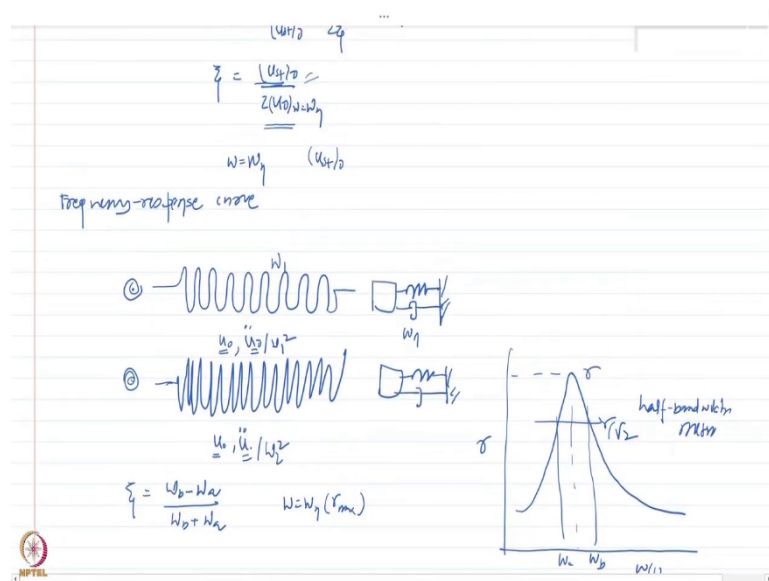 (ust)0 2ξ
ξ = (ust)0 =
2(u0)ω=ωn
ω=ωn (ust)0
Frequency-response curve
① ω1
ωn
u0, ü0/ω1²
②
u0, ü0/ω2²
ξ = ωb-ωa
ωb+ωa
ω=ωn (rmax)
r
half-bandwidth
r/√2
r
ωa ωb
NPTEL